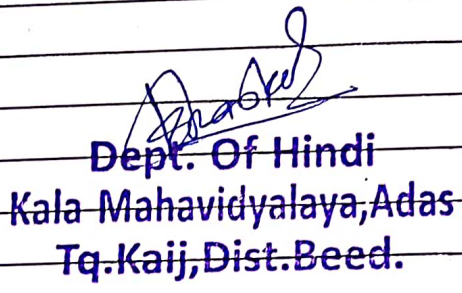 Dept. Of Hindi
Kala Mahavidyalaya,Adas
Tq.Kaij,Dist.Beed.